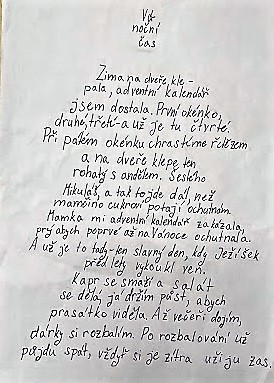 noční
čas
Zima na dveře, kle-
pala, adventní kalendář
jsem dostala. První okénko,
druhé, třetí-a už je tu čtvrté.
Při pátém okénku chrastíme řetězem
a na dveře klepe ten
rohatý s andělem. Šestého
Mikuláš, a tak to jde dál, než
mamčino cukroví potají ochutnám.
Mamka mi adventní kalendář zakázala,
prý abych poprvé až na Vánoce ochutnala.
A už je to tady-ten slavný den, kdy Ježíšek
před lety vykoukl ven.
Kapr se smaží a salát
se dělá, já držím půst, abych
prasátko viděla. Až večeři dojím,
dárky si rozbalím. Po rozbalování už
půjdu spát, vždyť si je zítra užiju zas.